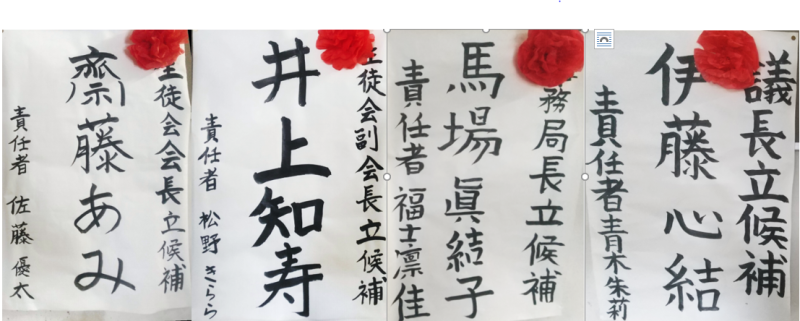 生徒会会長立候補
齋藤あみ
責任者 佐藤優太
生徒会副会長立候補
井上知寿
責任者 松野きらら
務局長立候補
馬場眞結子
責任者 福士凛佳
議長立候補
伊藤心結
責任者青木朱莉